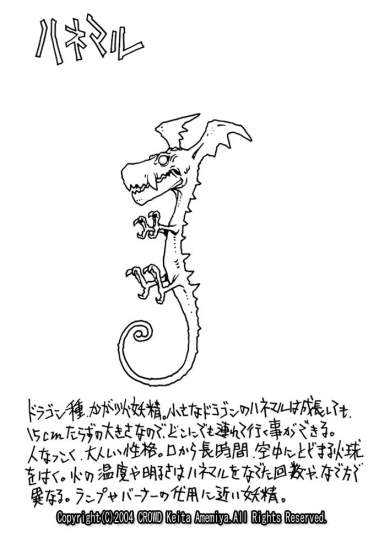 ハネマル
ドラゴン種、かがり火妖精。小さなドラゴンのハネマルは成長しても、
15cmたらずの大きさなので、どこにでも連れて行く事ができる。
人なつっこく、大人しい性格。口から長時間、空中にとどまる火球
をはく。火の温度や明るさはハネマルをなでた回数や、なで方で
異なる。ランプやバーナーの代用に近い妖精。
Copyright(C)2004 CROWD Keita Amemiya.All Rights Reserved.